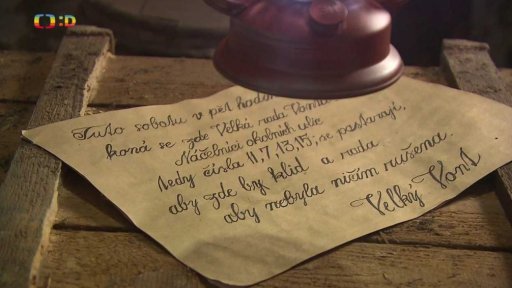 :D
Tuto sobotu v pět hodin
koná se zde Velká rada Vontů
Náčelníci okolních ulic
tedy čísla 11,7,13,15, se postarají,
aby zde byl klid a rada
aby nebyla ničím rušena.
Velký Vont